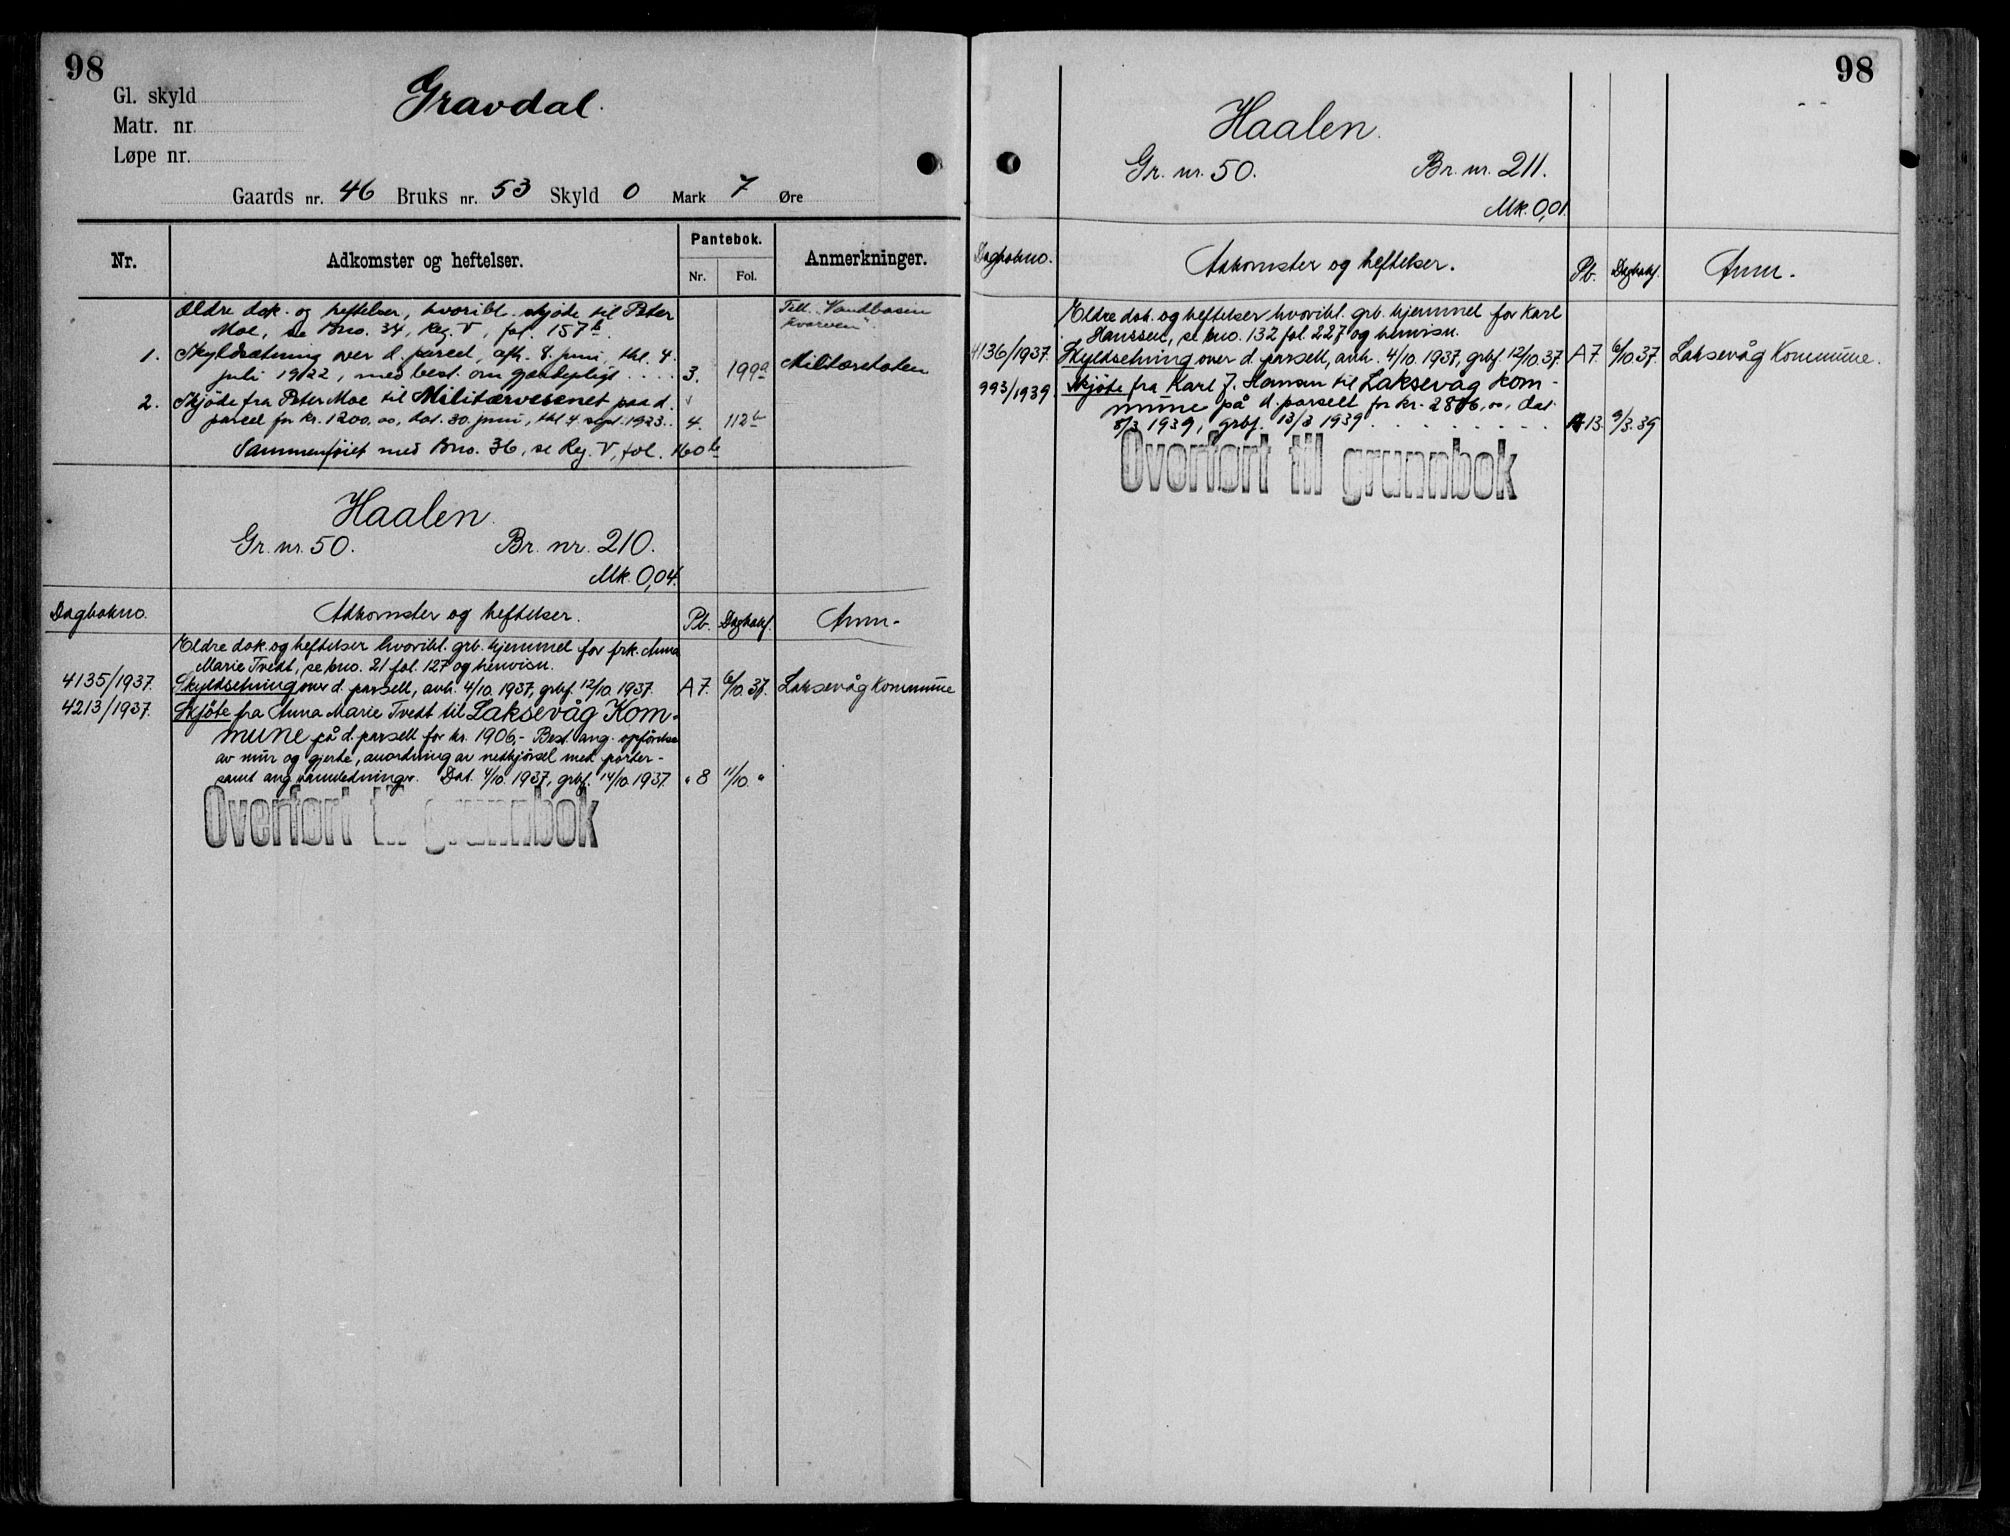 98
Gl. skyld
Matr. nr.
Løpe nr.
Gravdal.
Gaards nr. 46 Bruks nr. 53 Skyld 0 Mark 7 Øre
Nr.
Adkomster og heftelser.
Pantebok.
Nr. Fol.
Anmerkninger.
Ældre dok. og heftelser, hvoribl. skjøde til Peter
Moe, se Bno. 34, Reg. V, fol. 157b.
"Kvarven".
1. Skyldsætning over d. parcel, afh. 8. juni, thl. 4.
juli 1922, med best. om gjerdepligt . . . . 3. 199a
Militæretaten
2. Skjøde fra Peter Moe til Militærvesenet paa d.
parcel for kr. 1200,00, dat. 30. juni, thl. 4. sept. 1923. . 4. 112b
Sammenføiet med Bno. 36, se Reg. V, fol. 160b
Haalen.
Gr. nr. 50. Br. nr. 210.
Mk. 0,04.
Dagbokno. Adkomster og heftelser. Pb. Dagbokf. Anm.
Eldre dok. og heftelser hvoribl. grb. hjemmel for frk. Anna
Marie Tvedt, se bno. 21 fol. 127 og henvisn.
4135/1937. Skyldsetning over d. parsell, avh. 4/10. 1937, grbf. 12/10. 1937. A 7. 6/10. 37. Laksevåg Kommune
4213/1937. Skjöte fra Anna Marie Tvedt til Laksevåg Kom-
mune på d. parsell for kr. 1906,- Best. ang. opförelse
av mur og gjerde, anordning av nedkjörsel med porter-
samt ang. vannledninger. Dat. 4/10. 1937, grbf. 14/10. 1937. " 8 11/10. "
Overført til grunnbok
98
Haalen.
Gr. nr. 50. Br. nr. 211.
Mk. 0,01.
Dagbokno. Adkomster og heftelser. Pb. Dagbokf. Anm.
Eldre dok. og heftelser hvoribl. grb. hjemmel for Karl
Hanssen, se bno. 132 fol. 227 og henvisn.
4136/1937. Skyldsetning over d. parsell, avh. 4/10. 1937, grbf. 12/10. 37. A 7. 6/10. 37. Laksevåg Kommune.
993/1939. Skjöte fra Karl J. Hansen til Laksevåg kom-
mune på d. parsell for kr. dat.
8/3 1939, grbf. 13/3 1939 . . . . . . . . . A 13. 9/3. 39
Overført til grunnbok